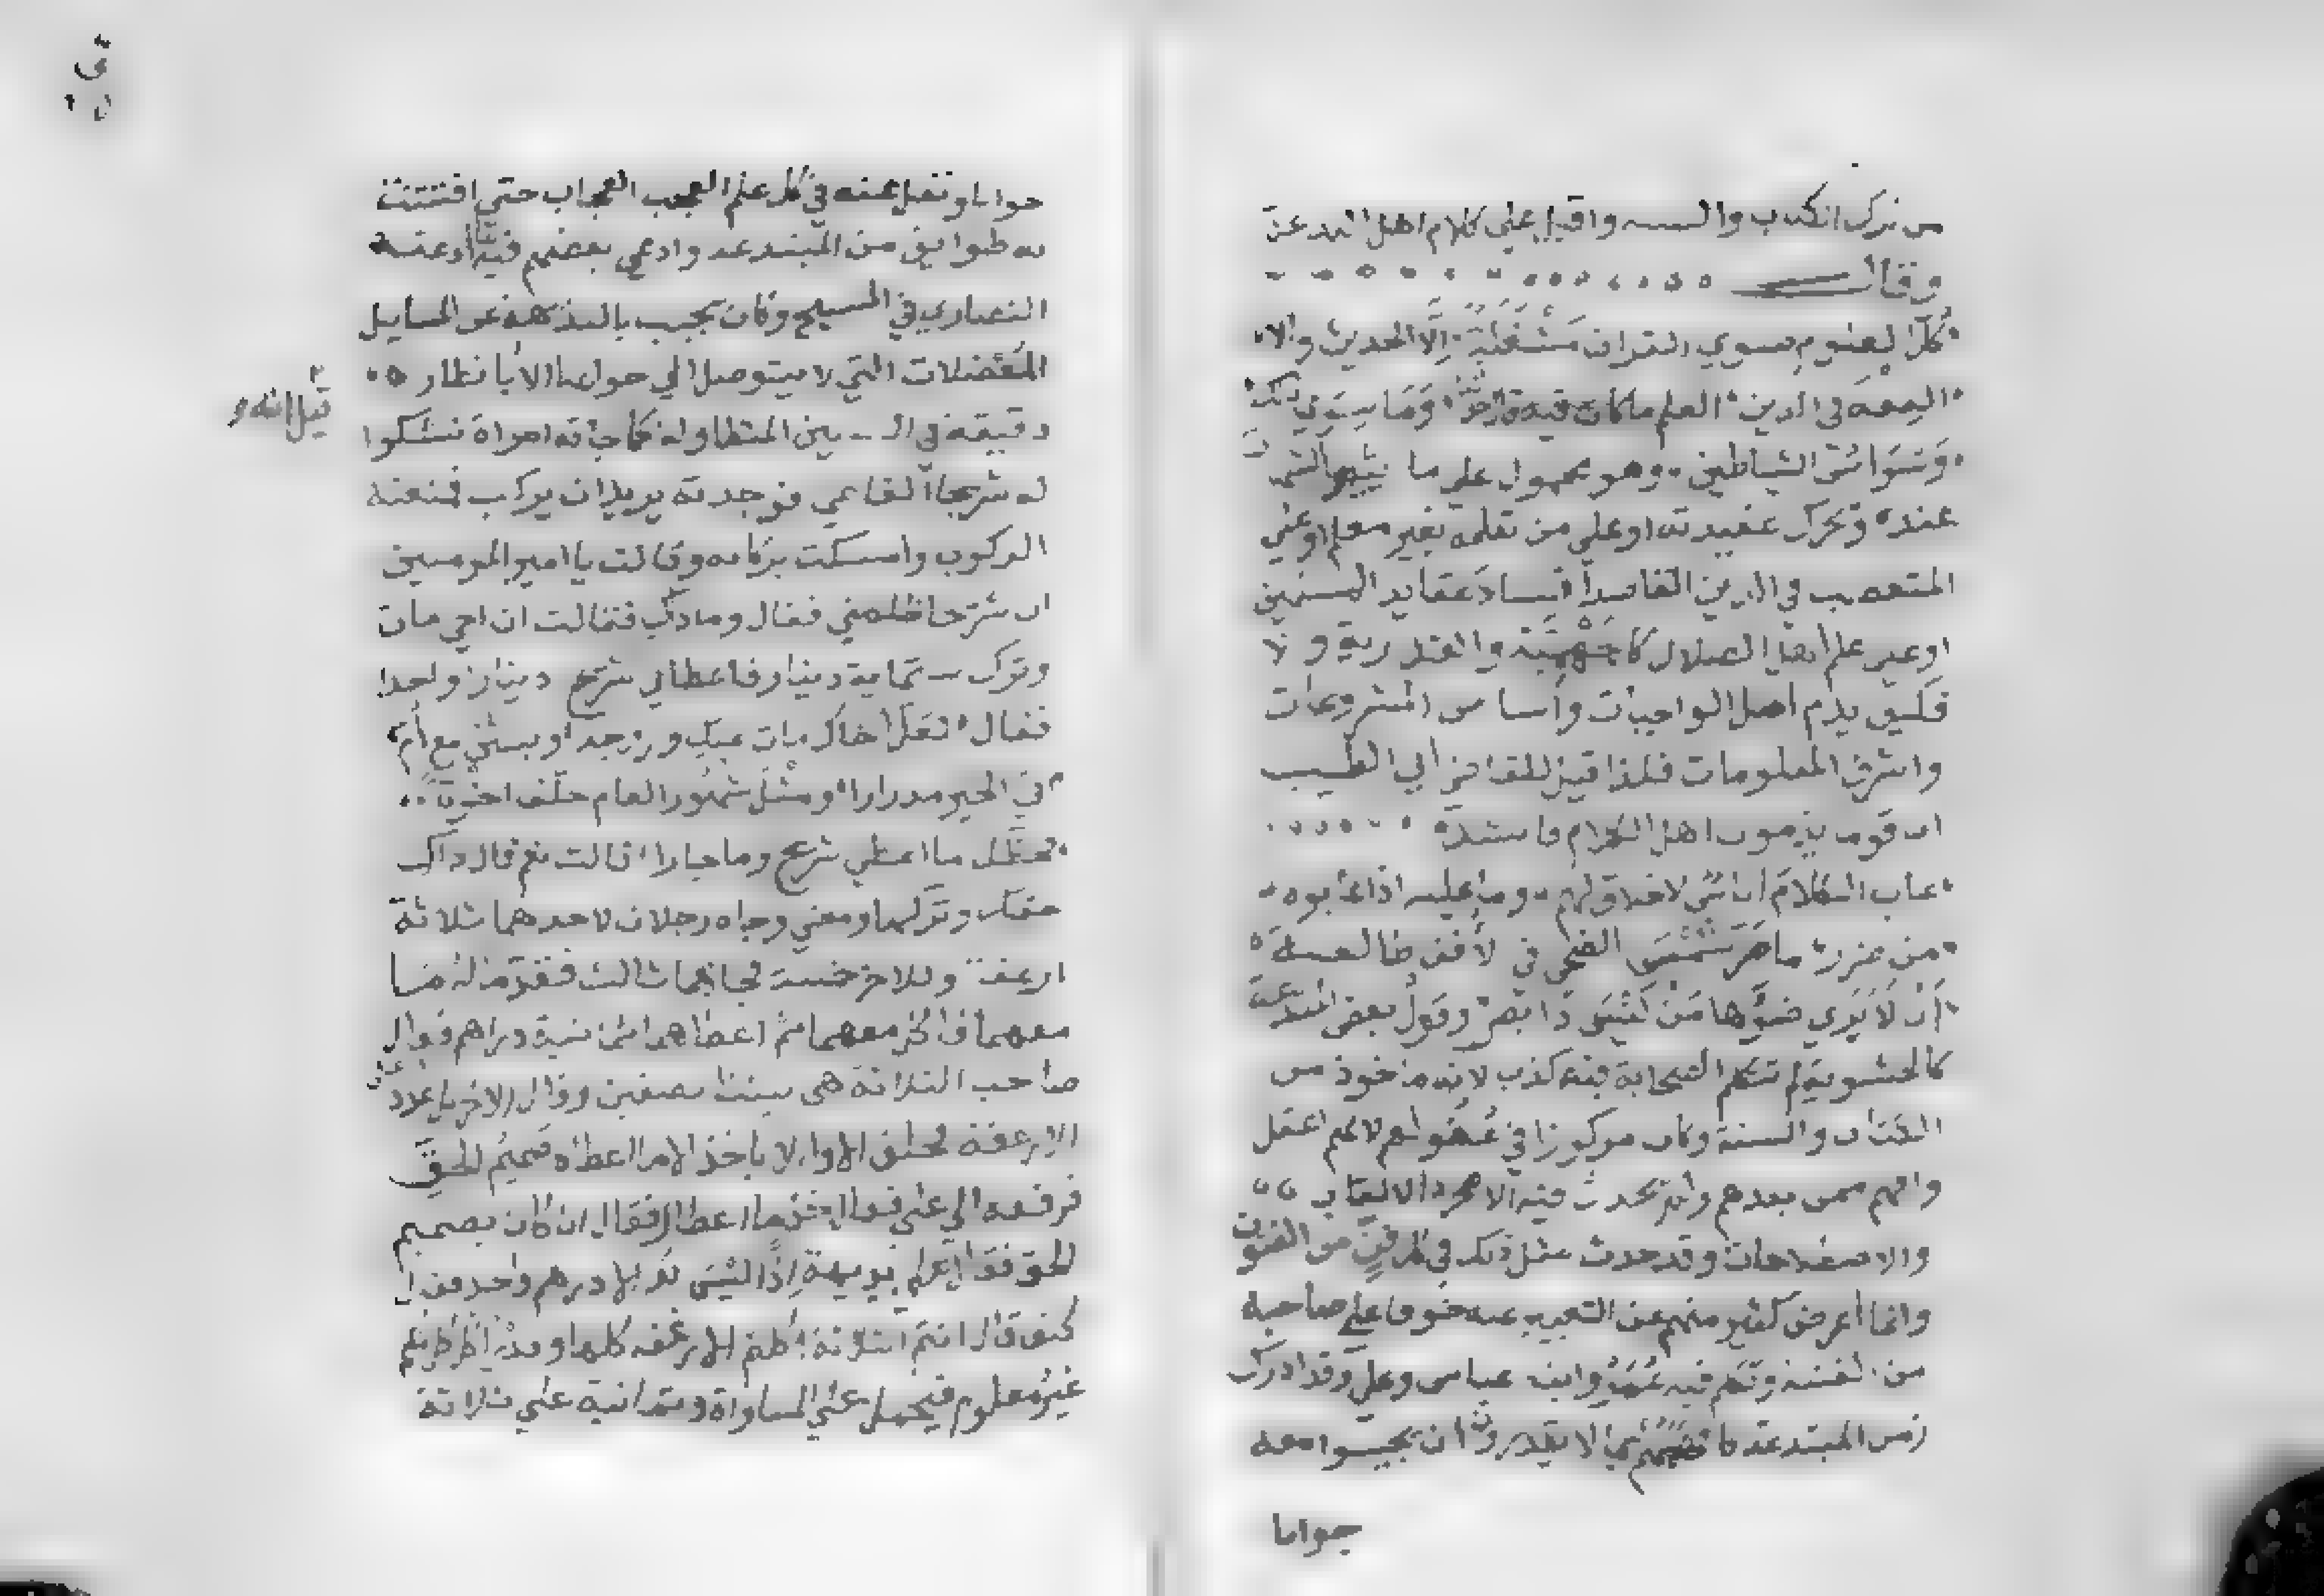 من ترك الكتاب والسنة واقبل على كلام اهل البدعة
وقال
كل العلوم سوي القران مشغلة الا الحديث والا
الفقه في الدين العلم ما كان فيه قال حدثنا وما سوي ذاك
وسواس الشياطين وهو محمول علي ما
عنده وتحرك عقيدته او علي من تعلمه بغير معلم او علي
المتعصب في الدين القاصد افساد عقايد المسلمين
او علم اهل الضلال كالجهمية والقدرية ولا
فكيف يذم اصل الواجبات واساس المشروعات
واشرف المعلومات فلذا قيل للقاضي ابي الطيب
ان قوما يذمون اهل الكلام فانشد
عاب الكلام اناس لا خلاق لهم وما عليه اذا عابوه
من ضرر ما ضر شمس الضحي في الافق طالعة
ان لا يري ضوءها من ليس ذا بصر وقول بعض المبتدعة
كالحشوية لم تتكلم الصحابة فيه كذب لانه ماخوذ من
الكتاب والسنة وكان مركوزا في عقولهم لانهم اعقل
وافهم ممن بعدهم ولم يحدث فيه الا مجرد الالقاب
والاصطلاحات وقد حدث مثل ذلك في كل فن من الفنون
وانما اعرض كثير منهم عن التعبير عنه خوفا علي صاحبه
من الفتنة وتكلم فيه عمر وابن عباس وعلي وقد ادرك
زمن المبتدعة بما لا يقدرون ان يجيبوا معه
جوابا
جوابا ونقل عنه في كل علم العجب العجاب حتي افتتنت
به طوايف من المبتدعة وادعي بعضهم فيه ما ادعته
النصاري في المسيح وكان يجيب بالبديهة عن المسايل
المعضلات التي لا يتوصل الي جوابها الا بانظار
دقيقة في المتطاولة كما جاته امراة تشكوا
قيل انه
له شريحا القاضي فوجدته يريد ان يركب فمنعته
الركوب وامسكت بركابه وقالت يا امير المومنين
ان شريحا ظلمني فقال وما ذاك فقالت ان اخي مات
وترك ستماية دينار فاعطاني شريح دينارا واحدا
فقال لعل اخاك مات عنك وزوجة وبنتين مع ام
في الخير مدرارا ومثل شهور العام خلف اخوة
فحظك ما اعطي شريح وما جارا قالت نعم قال ذاك
حقك وتركها ومضي وجاه رجلان لاحدهما ثلاثة
ارغفة وللاخر خمسة فجاهما ثالث
معهما فاكل معهما ثم اعطاهما ثمانية دراهم فقال
صاحب الثلاثة هي بيننا نصفين وقال الاخر بل علي عدد
الارغفة فحلف الاول لا ياخذ الا صميم الحق
فرفعه الي علي فقال خذ ما اعطاك فقال ان كان بصميم
الحق فقال علي بديهة اذا ليس لك الا درهم واحد فقال
كيف قال انتم الثلاثة اكلتم الارغفة كلها
غير معلوم فيحمل علي المساواة وثمانية علي ثلاثة